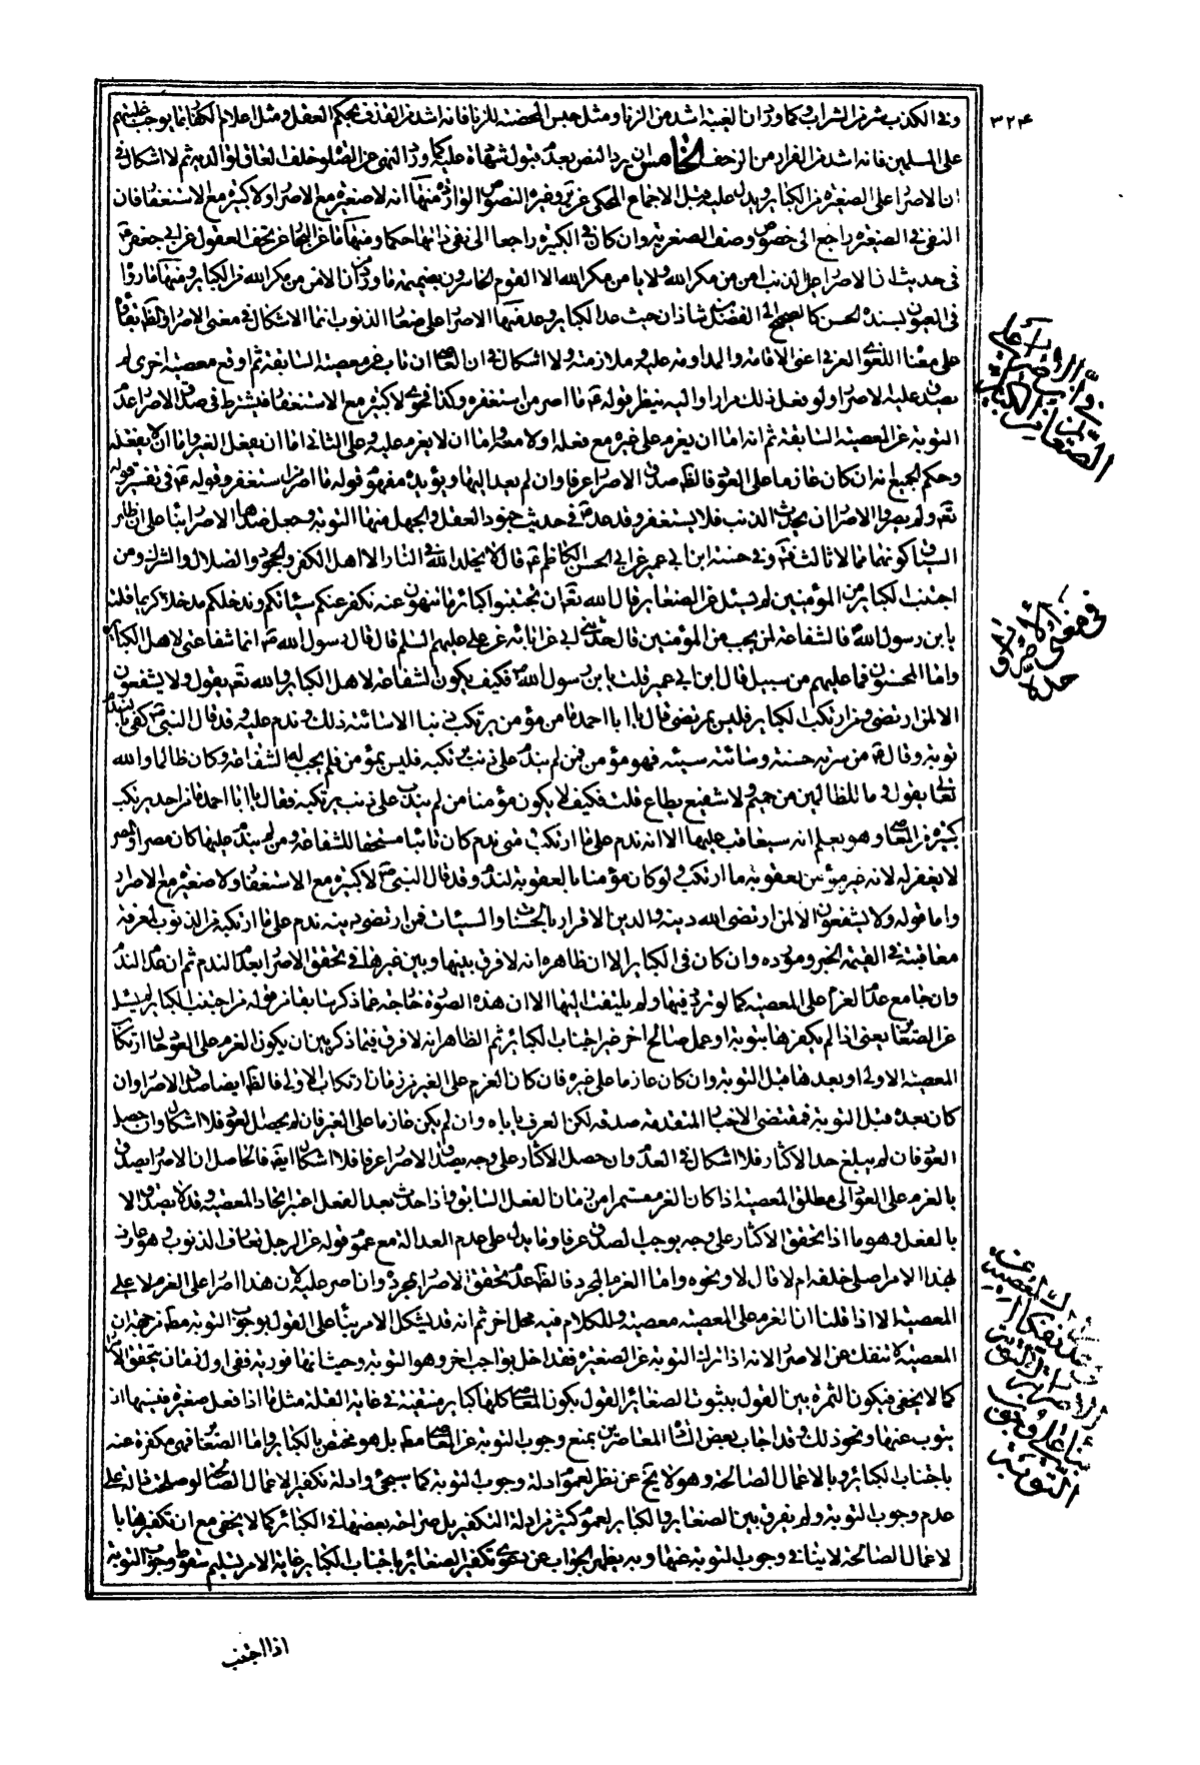 ٣٢٤
وفى الكذب شر من الشراب وكما ورد ان الغيبة اشد من الزنا ومثل حبس المحصنة للزنا فانه اشد من القذف بحكم العقل ومثل اعلام الكفار بما يوجب غلبتهم
على المسلمين فانه اشد من الفرار من الزحف الخامس ان يرد النص بعدم قبول شهادة عليه كما ورد النهى عن الصلوة خلف العاق لوالديه ثم لا اشكال فى
ان الاصرار على الصغيرة من الكبائر ويدل عليه قبل الاجماع المحكى عن ير وغيره النصوص الواردة منها انه لا صغيرة مع الاصرار ولا كبيرة مع الاستغفار فان
النفى فى الصغيرة راجع الى خصوص وصف الصغرية وان كان فى الكبيرة راجعا الى نفى ذاتها حكما ومنها ما عن البحار عن تحف العقول عن ابى جعفر ع
فى حديث ان الاصرار على الذنب امن من مكر الله ولا يامن مكر الله الا القوم الخاسرون بضميمة ما ورد من ان الامن من مكر الله من الكبائر ومنها ما ورد
فى العيون بسنده الحسن كالصحيح الى الفضل بن شاذان حيث عد الكبائر وعد فيها الاصرار على صغار الذنوب انما الاشكال فى معنى الاصرار والظ بقاؤه
على معناه اللغوى العرفى اعنى الاقامة والمداومة عليه وملازمته ولا اشكال فى ان العاصى ان تاب عن معصية السابقة ثم اوقع معصية اخرى لم
يصدق عليه الاصرار ولو فعل ذلك مرارا واليه ينظر قوله ع ما اصر من استغفره وكذا فحوى لا كبيرة مع الاستغفار فيشترط فى صدق الاصرار عدم
التوبة عن المعصية السابقة ثم انه اما ان يعزم على غيره مع فعله اولا معه واما ان لا يعزم عليه وعلى الثانى اما ان يفعل الغير واما ان لا يفعله
وحكم الجميع انه ان كان عازما على العود فالظ صدق الاصرار عرفا وان لم يعد اليها ويؤيده مفهوم قوله ما اصر من استغفر وقوله ع فى تفسير قوله
تع ولم يصروا الاصرار ان يحدث الذنب فلا يستغفر وقد عد ع فى حديث جنود العقل والجهل منها التوبة وجعل ضدها الاصرار بناء على ان ظاهر
السياق كونهما مما لا ثالث لهما وفى حسنة ابن ابى عمير عن ابى الحسن الكاظم ع قال لا يخلد الله فى النار الا اهل الكفر والجحود والضلال والشرك ومن
اجتنب الكبائر من المؤمنين لم يسئل عن الصغائر قال الله تع ان تجتنبوا كبائر ما تنهون عنه نكفر عنكم سيئاتكم وندخلكم مدخلا كريما قلت
يا ابن رسول الله فالشفاعة لمن يجب من المؤمنين قال حدثنى ابى عن ابائه عن على عليهم السلم قال قال رسول الله ص انما شفاعتى لاهل الكبائر
واما المحسنون فما عليهم من سبيل قال ابن ابى عمير قلت يا بن رسول الله ص فكيف يكون الشفاعة لاهل الكبائر والله تع يقول ولا يشفعون
الا لمن ارتضى ومن ارتكب الكبائر فليس بمرتضى قال يا ابا احمد ما من مؤمن يرتكب ذنبا الا سائته ذلك وندم عليه وقد قال النبى ص كفى بالندم
توبة وقال ع من سرته حسنة وسائته سيئة فهو مؤمن فمن لم يندم على ذنب يرتكبه فليس بمؤمن فلم يجب له الشفاعة وكان ظالما والله
تعالى يقول وما للظالمين من حميم ولا شفيع يطاع قلت فكيف لا يكون مؤمنا من لم يندم على ذنب يرتكبه فقال يا ابا احمد ما من احد يرتكب
كبيرة من المعاصى وهو يعلم انه سيعاقب عليها الا انه ندم على ما ارتكب ومتى ندم كان تائبا مستحقا للشفاعة ومن لم يندم عليها كان مصرا والمصر
لا يغفر له لانه غير مؤمن بعقوبة ما ارتكب ولو كان مؤمنا بالعقوبة لندم وقد قال النبى ص لا كبيرة مع الاستغفار ولا صغيرة مع الاصرار
واما قوله ولا يشفعون الا لمن ارتضى الله دينه والدين الاقرار بالحسنات والسيئات فمن ارتضى دينه ندم على ما ارتكبه من الذنوب لمعرفة
معاقبته فى القيمة الخبر ومورده وان كان فى الكبائر الا ان ظاهره انه لا فرق بينها وبين غيرها فى تحقق الاصرار بعدم الندم ثم ان عدم الندم
وان جامع عدم العزم على المعصية كما لو تردد فيها ولم يلتفت اليها الا ان هذه الصورة خارجة عما ذكر سابقا من قوله من اجتنب الكبائر لم يسئل
عن الصغائر يعنى اذا لم يكفرها بتوبة او عمل صالح اخر غير اجتناب الكبائر ثم الظاهر انه لا فرق فيما ذكر بين ان يكون العزم على العود حال ارتكاب
المعصية الاولى او بعدها قبل التوبة وان كان عازما على غيره فان كان العزم على الغير من زمان ارتكاب الاولى فالظ ايضا صدق الاصرار وان
كان بعده قبل التوبة فمقتضى الاخبار المتقدمة صدقه لكن العرف ياباه وان لم يكن عازما على الغير فان لم يحصل العود فلا اشكال وان حصل
العود فان لم يبلغ حد الاكثار فلا اشكال فى العدم وان حصل الاكثار على وجه يصدق الاصرار عرفا فلا اشكال ايضا فالحاصل ان الاصرار يصدق
بالعزم على العود الى مطلق المعصية اذا كان العزم مستمرا من زمان الفعل السابق واذا حدث بعد الفعل اعتبر اتحاد المعصية وقد لا يصدق الا
بالفعل وهو ما اذا تحقق الاكثار على وجه يوجب الصدق عرفا وما يدل على عدم العدالة مع عموم قوله عن الرجل تقارف الذنوب وهو عارف
بهذا الامر اصلى خلفه ام لا قال لا ونحوه واما العزم المجرد فالظ عدم تحقق الاصرار بمجرده وان اصر عليه لان هذا اصرار على العزم لا على
المعصية الا اذا قلنا ان العزم على المعصية معصية وللكلام فيه محل اخر ثم انه قد يشكل الامر بناء على القول بوجوب التوبة مط من جهة ان
المعصية لا تنفك عن الاصرار لانه اذا ترك التوبة عن الصغيرة فقد اخل بواجب اخر وهو التوبة وحيث انها فورية ففى اول زمان يتحقق الاصرار
كما لا يخفى فيكون الثمرة بين القول بثبوت الصغائر والقول بكون المعاصى كلها كبائر منتفية فى غاية القلة مثل ما اذا فعل صغيرة فنسيها ان
يتوب عنها ونحو ذلك وقد اجاب بعض السادة المعاصرين بمنع وجوب التوبة عن المعاصى مط بل هو مختص بالكبائر واما الصغائر فهى مكفرة عنه
باجتناب الكبائر وبالاعمال الصالحة وهو لا يخ عن نظر لعموم ادلة وجوب التوبة كما سيجئ وادلة تكفير الاعمال الصالحة لو صلحت فانه على
عدم وجوب التوبة ولم يفرق بين الصغائر والكبائر لعموم كثير من ادلة التكفير بل صراحة بعضها فى الكبائر كما لا يخفى مع ان تكفيرها با
لاعمال الصالحة لا ينافى وجوب التوبة عنها وبه يظهر الجواب عن دعوى تكفير الصغائر باجتناب الكبائر غاية الامر تسليم سقوط وجوب التوبة
اذا اجتنب
فى ان الاصرار على
الصغائر من الكبائر
فى معنى الاصرار و
حده
بناء على وجوب
التوبة